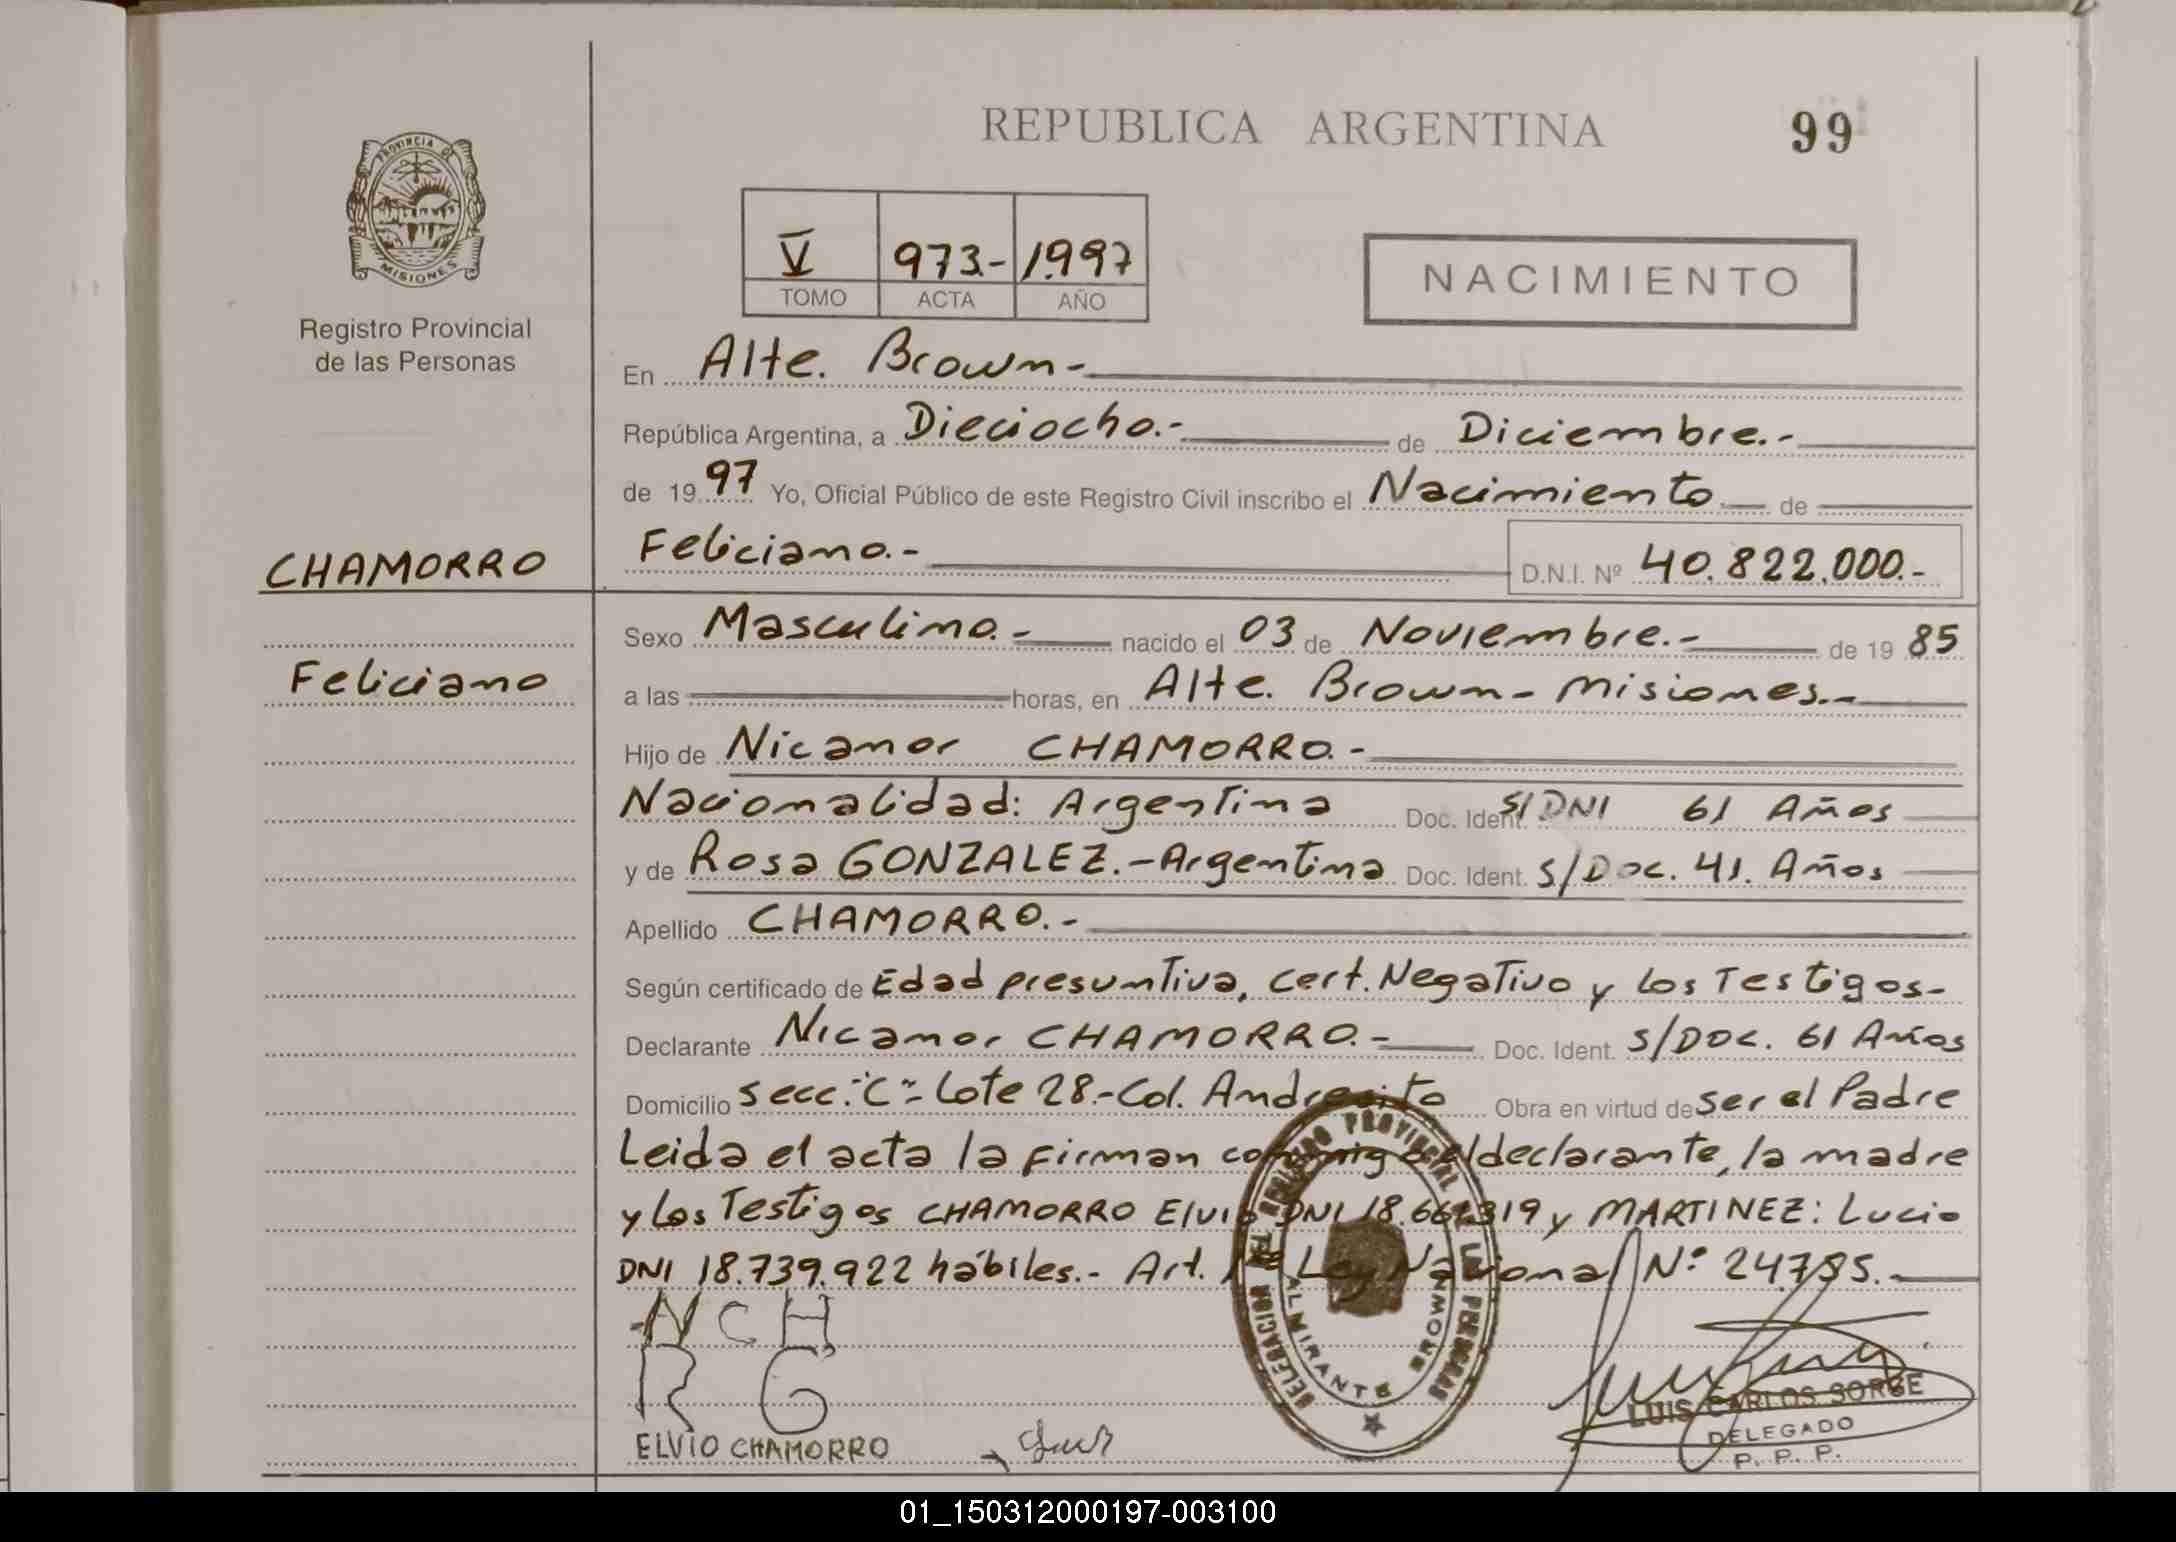 REPUBLICA ARGENTINA
99
PROVINCIA DE
MISIONES
Registro Provincial
de las Personas
V 973.- 1997
TOMO ACTA AÑO
NACIMIENTO
En Alte. Brown-
República Argentina, a Dieciocho.- de Diciembre.-
de 19 97 Yo, Oficial Público de este Registro Civil inscribo el Nacimiento de
CHAMORRO
Feliciano.- D.N.I. Nº 40.822.000.-
Sexo Masculino.- nacido el 03 de Noviembre.- de 19 85
Feliciano
a las horas, en Alte. Brown- Misiones.-
Hijo de Nicanor CHAMORRO.-
Nacionalidad: Argentina Doc. Ident. S/DNI 61 Años
y de Rosa GONZALEZ.-Argentina Doc. Ident. S/Doc. 41. Años
Apellido CHAMORRO.-
Según certificado de Edad presuntiva, cert. Negativo y los Testigos-
Declarante Nicanor CHAMORRO.- Doc. Ident. S/Doc. 61 Años
Domicilio secc: "C"- Lote 28.-Col. Andresito Obra en virtud de ser el Padre
Leida el acta la firman conmigo el declarante, la madre
y los Testigos CHAMORRO Elvio DNI MARTINEZ: Lucio
DNI 18.739.922 hábiles.- Art. Ley Nacional Nº
DELEGACION DEL REGISTRO PROVINCIAL DE LAS PERSONAS
ALMIRANTE BROWN
N C H
R G
ELVIO CHAMORRO
LUIS CARLOS SORGE
DELEGADO
P. P. P.
01_150312000197-003100